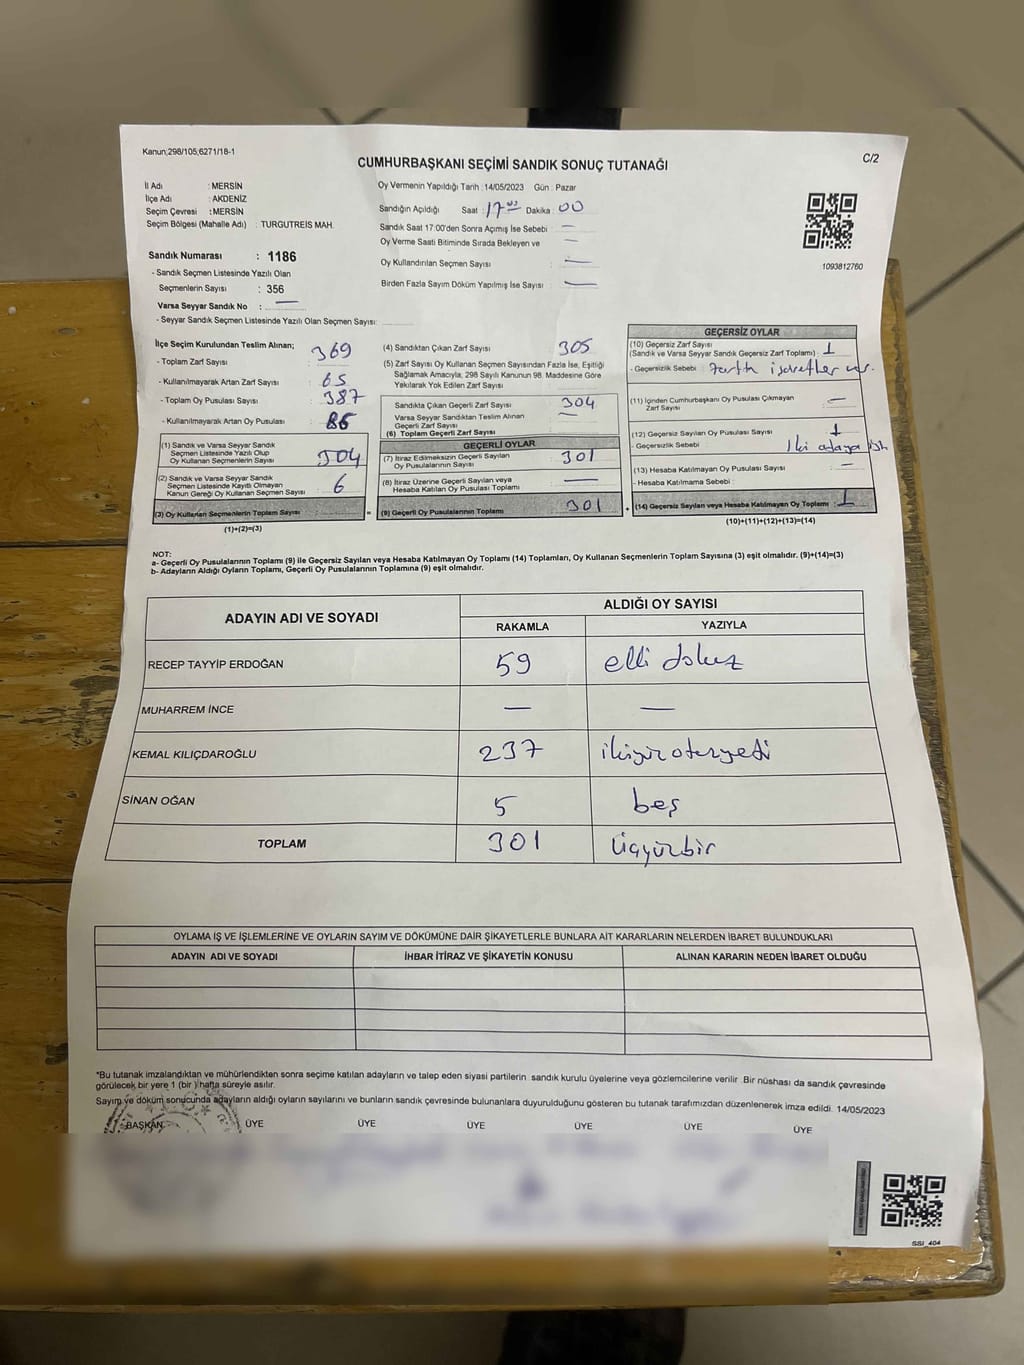 Kanun;298/105;6271/18-1
C/2
CUMHURBAŞKANI SEÇİMİ SANDIK SONUÇ TUTANAĞI
İl Adı : MERSİN
İlçe Adı : AKDENİZ
Seçim Çevresi : MERSİN
Seçim Bölgesi (Mahalle Adı) : TURGUTREİS MAH.
Sandık Numarası : 1186
- Sandık Seçmen Listesinde Yazılı Olan
Seçmenlerin Sayısı : 356
Varsa Seyyar Sandık No : —
- Seyyar Sandık Seçmen Listesinde Yazılı Olan Seçmen Sayısı:
Oy Vermenin Yapıldığı Tarih : 14/05/2023 Gün : Pazar
Sandığın Açıldığı Saat : 17 Dakika : 00
Sandık Saat 17:00'den Sonra Açımış İse Sebebi : —
Oy Verme Saati Bitiminde Sırada Bekleyen ve : —
Oy Kullandırılan Seçmen Sayısı : —
Birden Fazla Sayım Döküm Yapılmış İse Sayısı : —
1093812760
İlçe Seçim Kurulundan Teslim Alınan;
- Toplam Zarf Sayısı : 369
- Kullanılmayarak Artan Zarf Sayısı : 65
- Toplam Oy Pusulası Sayısı : 387
- Kullanılmayarak Artan Oy Pusulası : 86
(1) Sandık ve Varsa Seyyar Sandık
Seçmen Listesinde Yazılı Olup
Oy Kullanan Seçmenlerin Sayısı : 304
(2) Sandık ve Varsa Seyyar Sandık
Seçmen Listesinde Kayıtlı Olmayan
Kanun Gereği Oy Kullanan Seçmen Sayısı : 6
(3) Oy Kullanan Seçmenlerin Toplam Sayısı
(1)+(2)=(3)
(4) Sandıktan Çıkan Zarf Sayısı : 305
(5) Zarf Sayısı Oy Kullanan Seçmen Sayısından Fazla İse, Eşitliği
Sağlamak Amacıyla, 298 Sayılı Kanunun 98. Maddesine Göre
Yakılarak Yok Edilen Zarf Sayısı :
Sandıkta Çıkan Geçerli Zarf Sayısı : 304
Varsa Seyyar Sandıktan Teslim Alınan
Geçerli Zarf Sayısı : —
(6) Toplam Geçerli Zarf Sayısı
GEÇERLİ OYLAR
(7) İtiraz Edilmeksizin Geçerli Sayılan
Oy Pusulalarının Sayısı : 301
(8) İtiraz Üzerine Geçerli Sayılan veya
Hesaba Katılan Oy Pusulası Toplamı : —
(9) Geçerli Oy Pusulalarının Toplamı : 301
GEÇERSİZ OYLAR
(10) Geçersiz Zarf Sayısı
(Sandık ve Varsa Seyyar Sandık Geçersiz Zarf Toplamı) : 1
- Geçersizlik Sebebi : işaretler var.
(11) İçinden Cumhurbaşkanı Oy Pusulası Çıkmayan
Zarf Sayısı : —
(12) Geçersiz Sayılan Oy Pusulası Sayısı : 1
- Geçersizlik Sebebi : İki adaya
(13) Hesaba Katılmayan Oy Pusulası Sayısı : —
- Hesaba Katılmama Sebebi :
(14) Geçersiz Sayılan veya Hesaba Katılmayan Oy Toplamı : 1
(10)+(11)+(12)+(13)=(14)
NOT:
a- Geçerli Oy Pusulalarının Toplamı (9) ile Geçersiz Sayılan veya Hesaba Katılmayan Oy Toplamı (14) Toplamları, Oy Kullanan Seçmenlerin Toplam Sayısına (3) eşit olmalıdır. (9)+(14)=(3)
b- Adayların Aldığı Oyların Toplamı, Geçerli Oy Pusulalarının Toplamına (9) eşit olmalıdır.
ADAYIN ADI VE SOYADI
ALDIĞI OY SAYISI
RAKAMLA YAZIYLA
RECEP TAYYİP ERDOĞAN 59 elli dokuz
MUHARREM İNCE — —
KEMAL KILIÇDAROĞLU 237 ikiyüzotuzyedi
SİNAN OĞAN 5 beş
TOPLAM 301 üçyüzbir
OYLAMA İŞ VE İŞLEMLERİNE VE OYLARIN SAYIM VE DÖKÜMÜNE DAİR ŞİKAYETLERLE BUNLARA AİT KARARLARIN NELERDEN İBARET BULUNDUKLARI
ADAYIN ADI VE SOYADI İHBAR İTİRAZ VE ŞİKAYETİN KONUSU ALINAN KARARIN NEDEN İBARET OLDUĞU
*Bu tutanak imzalandıktan ve mühürlendikten sonra seçime katılan adayların ve talep eden siyasi partilerin sandık kurulu üyelerine veya gözlemcilerine verilir. Bir nüshası da sandık çevresinde
görülecek bir yere 1 (bir ) hafta süreyle asılır.
Sayım ve döküm sonucunda adayların aldığı oyların sayılarını ve bunların sandık çevresinde bulunanlara duyurulduğunu gösteren bu tutanak tarafımızdan düzenlenerek imza edildi. 14/05/2023
BAŞKAN ÜYE ÜYE ÜYE ÜYE ÜYE ÜYE
SSI_404